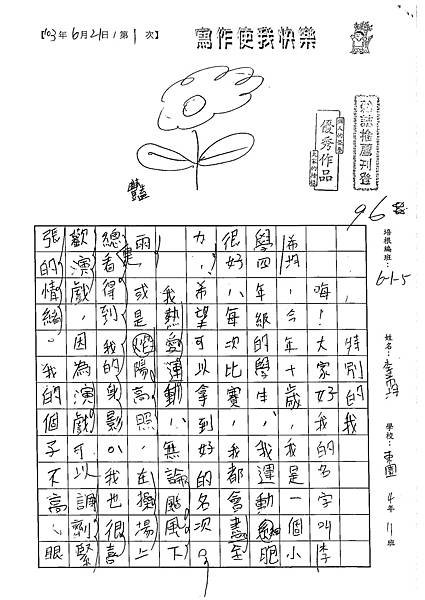 【103年6月21日/第1次】
寫作使我快樂
雜誌推薦刊登
優秀作品
96
培根編班：6-1-5
姓名：
學校：東園4年11班
特別的我
嗨，大家好，我的名字叫李
！今年十歲，我是一個小
學四年級的學生，我運動細胞
很好，每次比賽，我都會盡全
力，希望可以拿到好的名次。
我熱愛運動，無論颱風下
雨或是陽高照，在操場上
總會看得到我的身影，我也很喜
歡演戲，因為演戲可以調劑緊
張的情緒。我的個子不高，眼